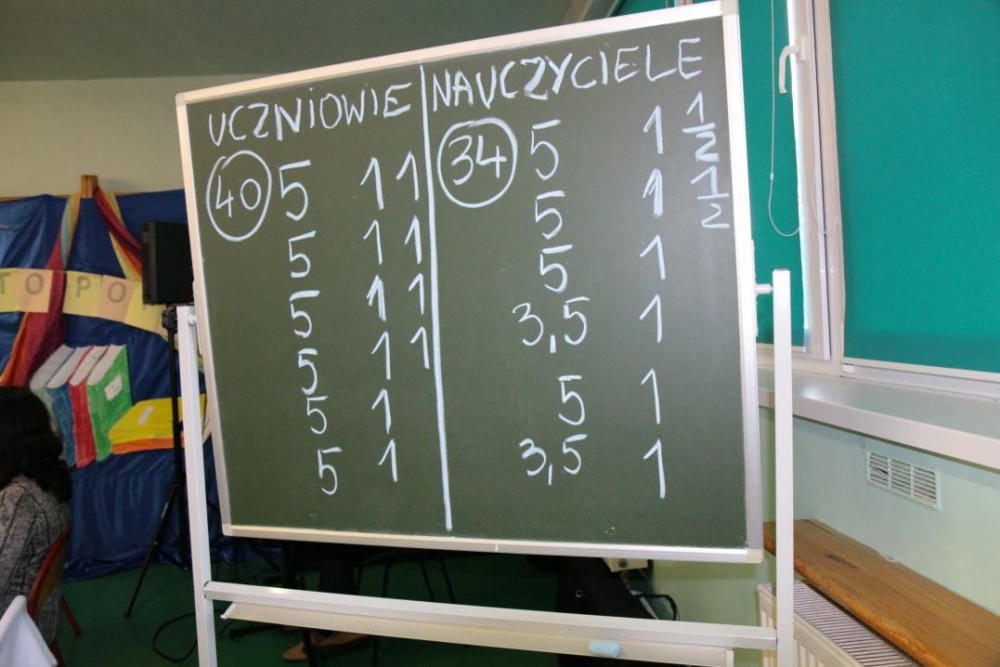 UCZNIOWIE NAUCZYCIELE
40 5 1 1 34 5 1 1/2
5 1 1 5 1 1/2
5 1 1 5 1
5 1 1 3,5 1
5 1 5 1
5 1 3,5 1
TOPO